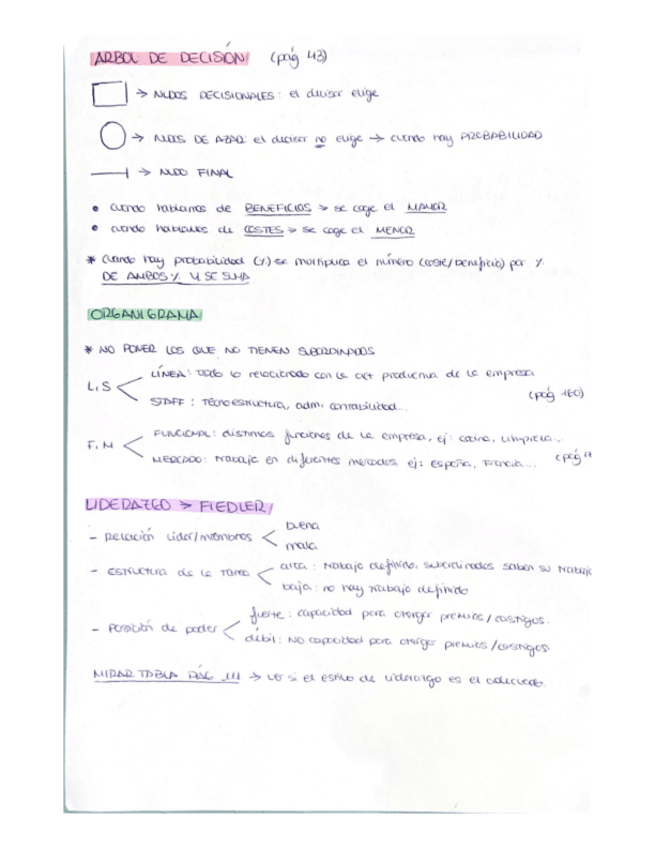 ARBOL DE DECISIÓN (pág 43)
→ NUDOS DECISIONALES: el decisor elige
→ NUDOS DE AZAR: el decisor no elige → cuando hay PROBABILIDAD
→ NUDO FINAL
• cuando hablamos de BENEFICIOS → se coge el MAYOR
• cuando hablamos de COSTES → se coge el MENOR
* Cuando hay probabilidad (%) se multiplica el número (coste/beneficio) por %
DE AMBOS % Y SE SUMA
ORGANIGRAMA
* NO PONER LOS QUE NO TIENEN SUBORDINADOS
L,S
LÍNEA: todo lo relacionado con la act productiva de la empresa
STAFF: Tecnoestructura, adm, contabilidad...
(pág 160)
F, M
FUNCIONAL: distintas funciones de la empresa, ej: cocina, limpieza...
MERCADO: trabaja en diferentes mercados, ej: España, Francia...
(pág
LIDERAZGO → FIEDLER
- Relación líder/miembros
buena
mala
- ESTRUCTURA de la Tarea
alta: trabajo definido, subordinados saben su trabajo
baja: no hay trabajo definido
- Posición de poder
fuerte: capacidad para otorgar premios/castigos.
débil: NO capacidad para otorgar premios/castigos
MIRAR TABLA PÁG 111 → ver si el estilo de liderazgo es el adecuado.